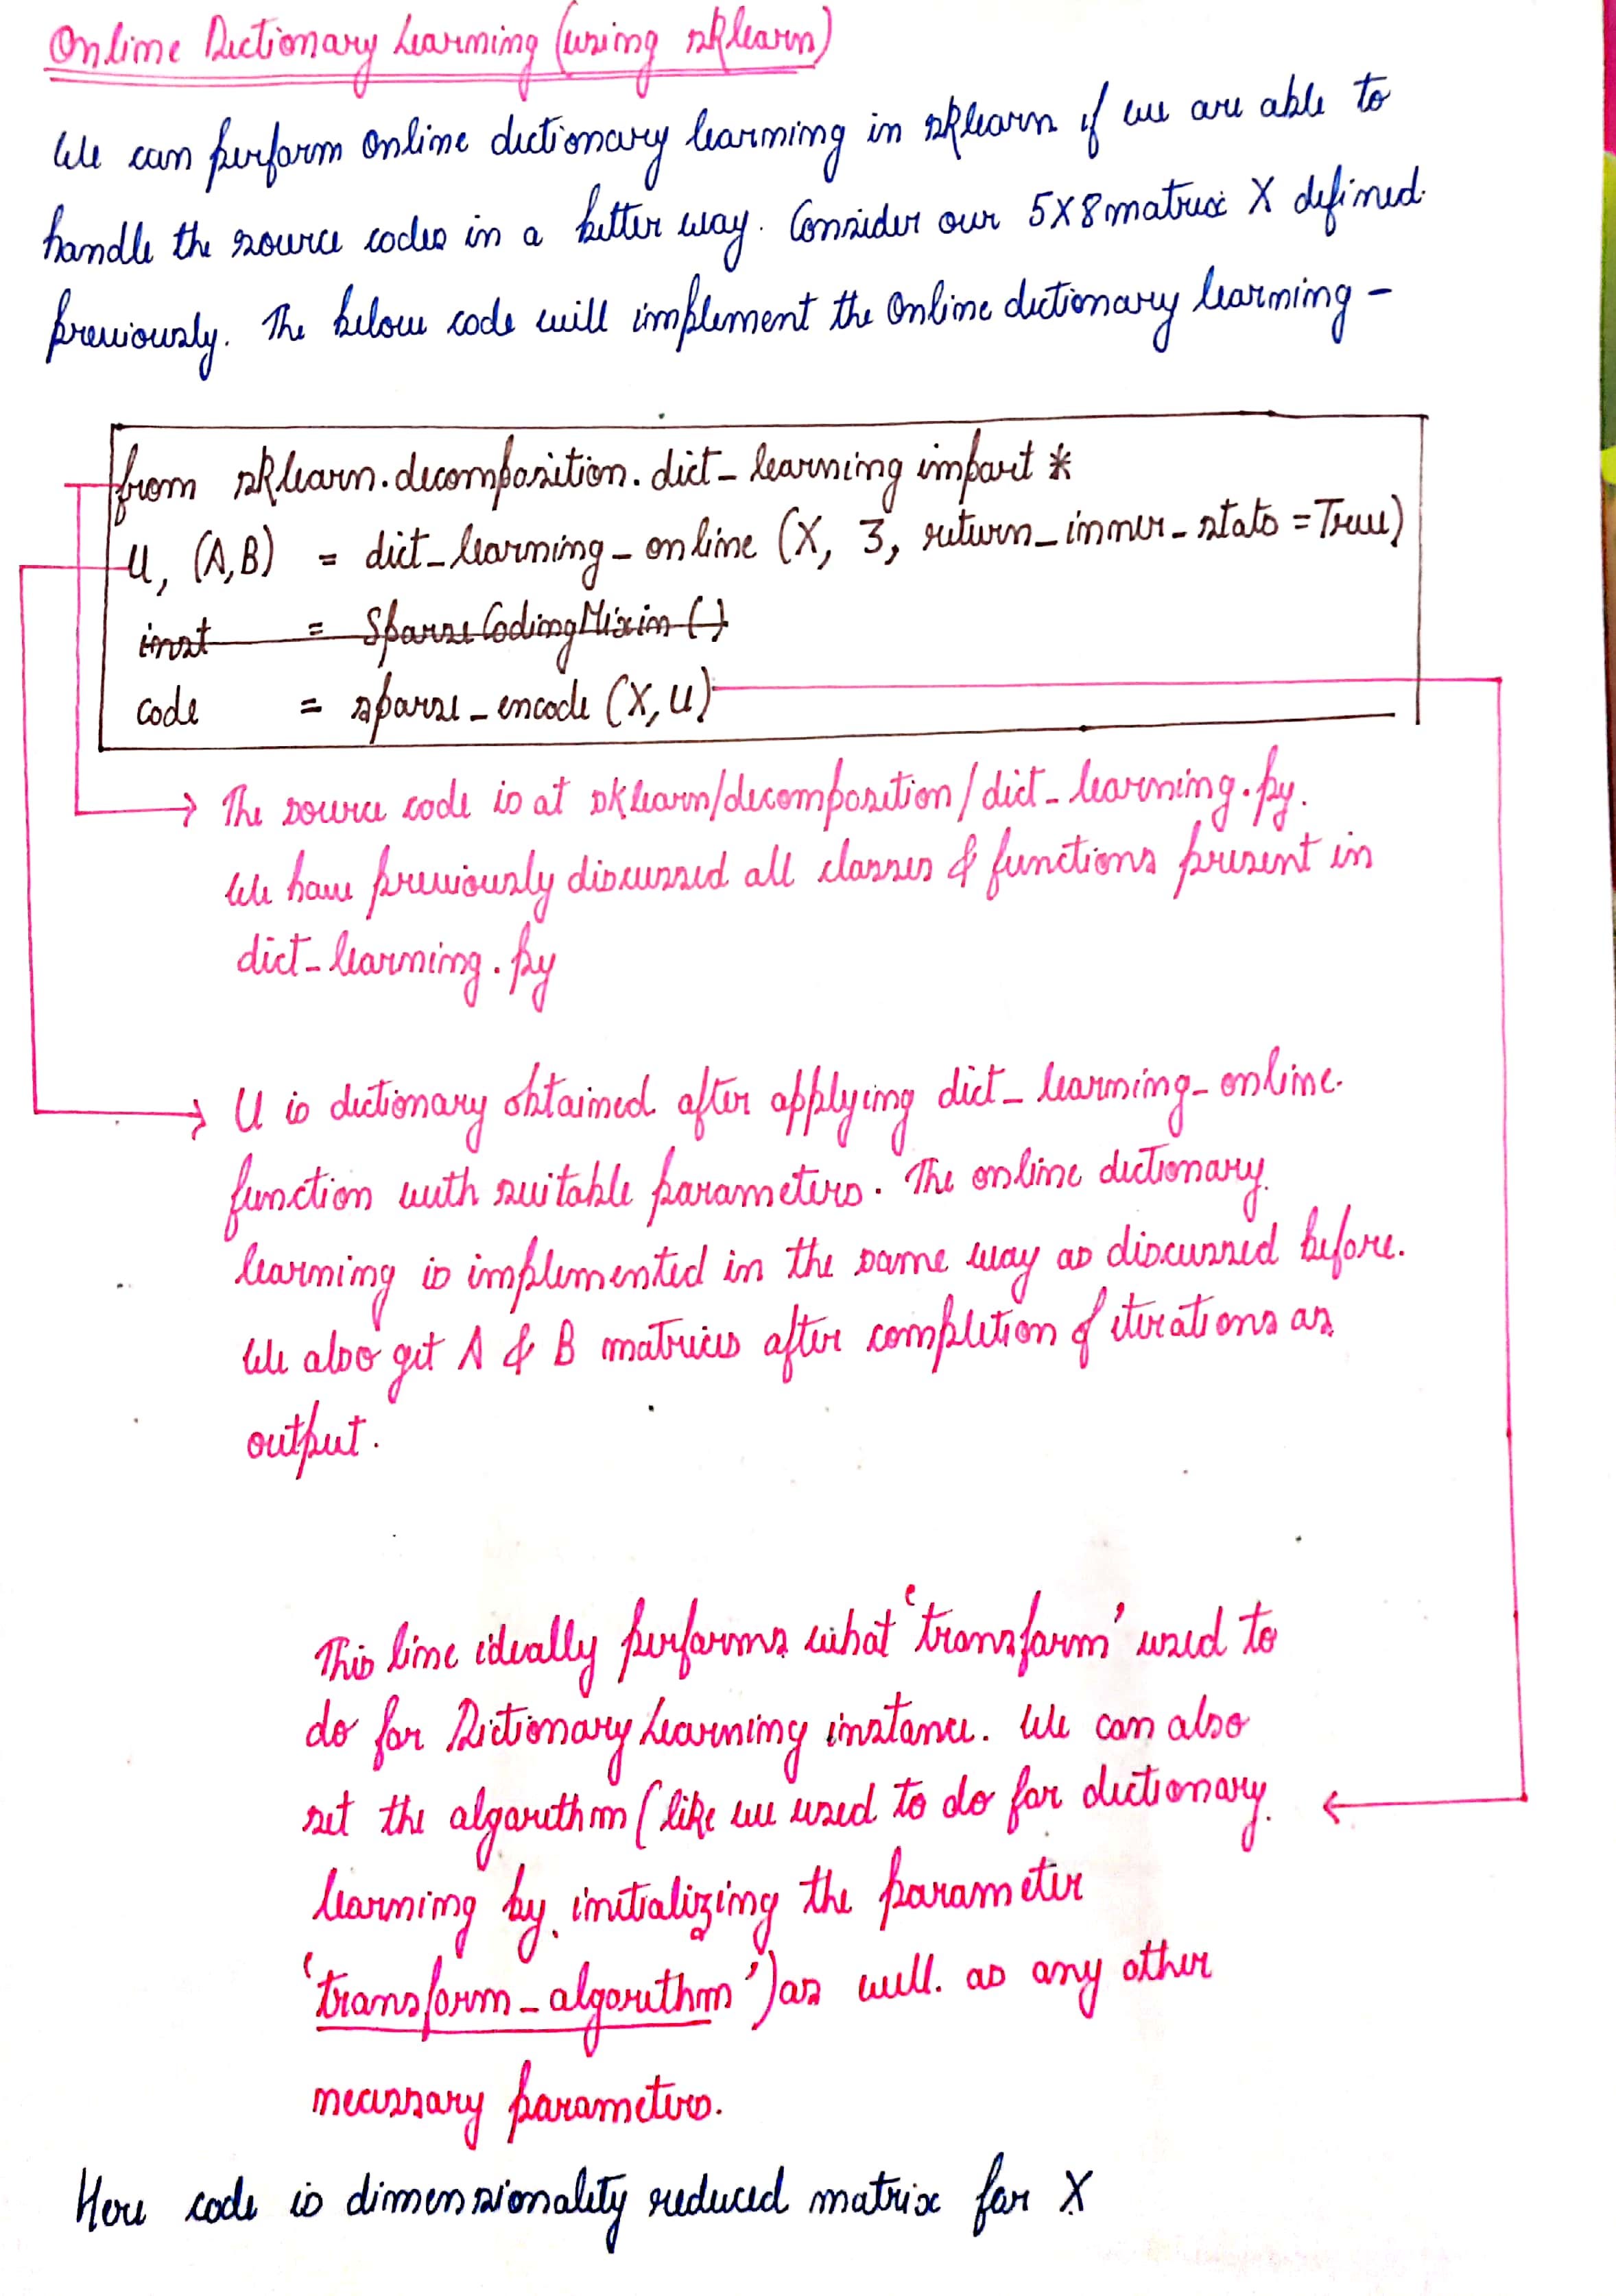 Online Dictionary Learning (using sklearn)
We can perform online dictionary learning in sklearn if we are able to
handle the source codes in a better way. Consider our 5X8 matrix X defined
previously. The below code will implement the Online dictionary learning -
from sklearn.decomposition.dict_learning import *
U, (A,B) = dict_learning_online (X, 3, return_inner_stats = True)
inst = SparseCodingMixin ()
code = sparse_encode (X, U)
The source code is at sklearn/decomposition/dict_learning.py.
We have previously discussed all classes & functions present in
dict_learning.py
U is dictionary obtained after applying dict_learning_online
function with suitable parameters. The online dictionary
learning is implemented in the same way as discussed before.
We also get A & B matrices after completion of iterations as
output.
This line ideally performs what 'transform' used to
do for Dictionary Learning instance. We can also
set the algorithm (like we used to do for dictionary
learning by initializing the parameter
'transform_algorithm') as well as any other
necessary parameters.
Here code is dimensionality reduced matrix for X